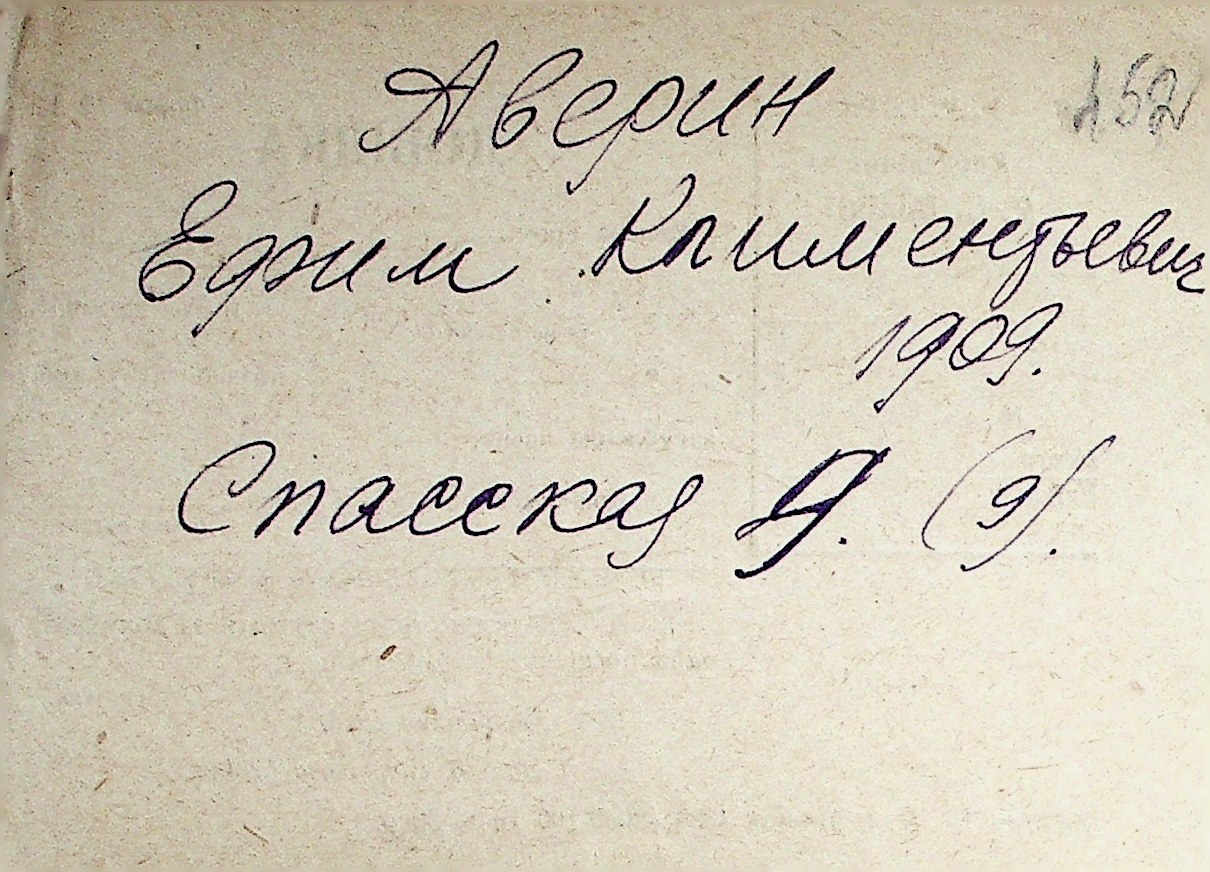 Аверин
152
Ефим Климентьевич
1909.
Спасская Д. (9).